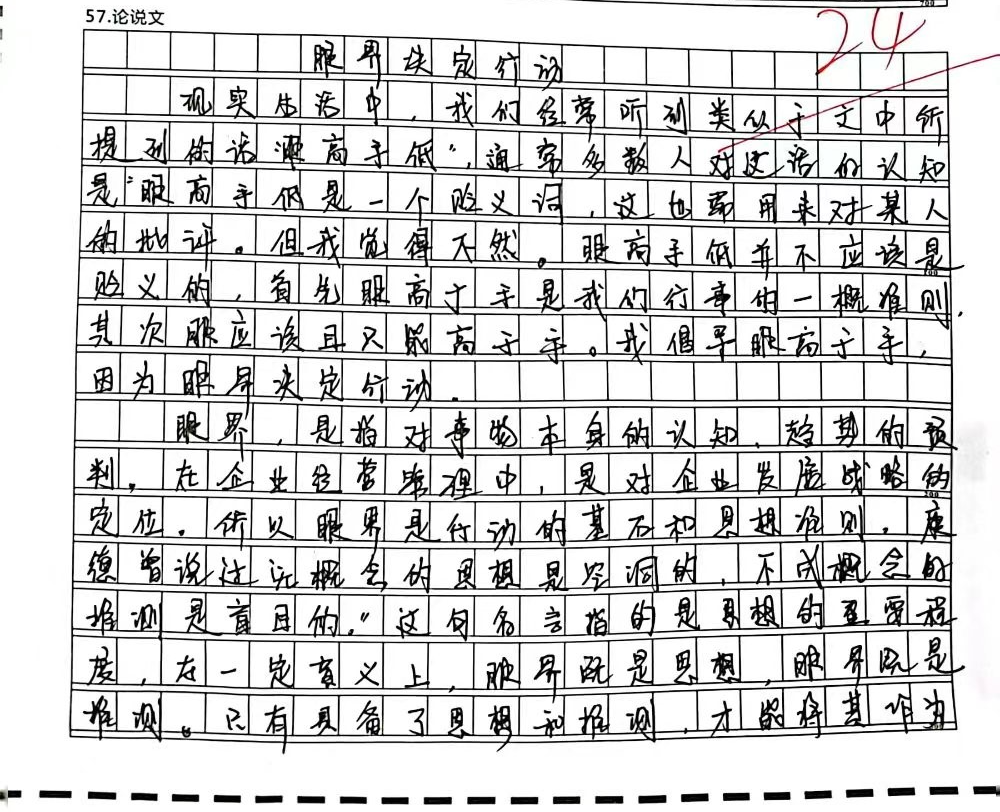 57.论说文
24
眼界决定行动
现实生活中，我们经常听到类似于文中所
提到的话"眼高手低"，通常多数人对这话的认知
是"眼高手低是一个贬义词，这也常用来对某人
的批评。但我觉得不然。眼高手低并不应该是
贬义的，首先眼高于手是我们行事的一概准则，
其次眼应该且只能高于手。我倡导眼高于手，
因为眼界决定行动。
眼界，是指对事物本身的认知、趋势的预
判。在企业经营管理中，是对企业发展战略的
定位。所以眼界是行动的基石和思想准则。康
德曾说过"无概念的思想是空洞的，不成概念的
推测是盲目的。"这句名言指的是思想的重要程
度，在一定意义上，眼界既是思想，眼界既是
推测。只有具备了思想和推测，才能将其作为